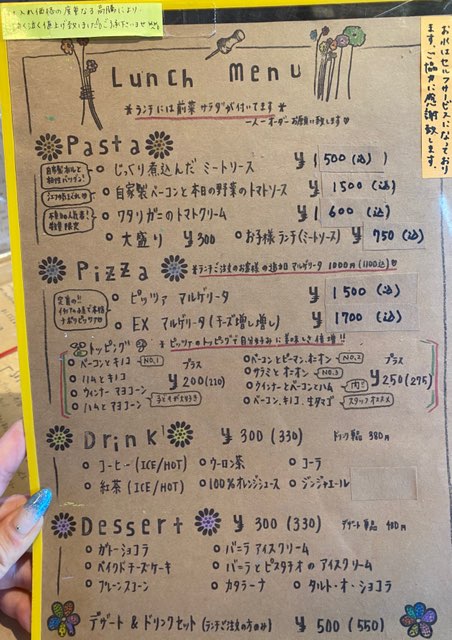 仕入れ価格の度重なる高騰により
泣く泣く値上げ致しました。ご了承下さいませ
お水はセルフサービスになっております。ご協力に感謝致します。
Lunch Menu
*ランチには前菜サラダが付いてます*
一人一オーダーお願い致します♡
Pasta
じっくり煮込んだミートソース ¥1500(込)
自家製ベーコンと本日の野菜のトマトソース ¥1500(込)
ワタリガニのトマトクリーム ¥1600(込)
大盛り ¥300 お子様ランチ(ミートソース) ¥750(込)
Pizza *ランチご注文のお客様の追加 マルゲリータ 1000円(1100込)♡
ピッツァ マルゲリータ ¥1500(込)
EX マルゲリータ(チーズ増し増し) ¥1700(込)
トッピング *ピッツァのトッピングで自分好みに美味しさ倍増!!
ベーコンとキノコ NO.1
ハムとキノコ
ウィンナーマヨコーン
ハムとマヨコーン
プラス ¥200(220)
ベーコンとピーマン、オニオン NO.2
サラミとオニオン NO.3
ウィンナーとベーコンとハム
ベーコン、キノコ、生タマゴ スタッフオススメ
プラス ¥250(275)
Drink ¥300(330) ドリンク単品 380円
コーヒー(ICE/HOT) ウーロン茶 コーラ
紅茶(ICE/HOT) 100%オレンジジュース ジンジャエール
Dessert ¥300(330) デザート単品 400円
ガトーショコラ バニラアイスクリーム
ベイクドチーズケーキ バニラとピスタチオのアイスクリーム
プレーンスコーン カタラーナ タルト・オ・ショコラ
デザート & ドリンクセット(ランチご注文の方のみ) ¥500(550)